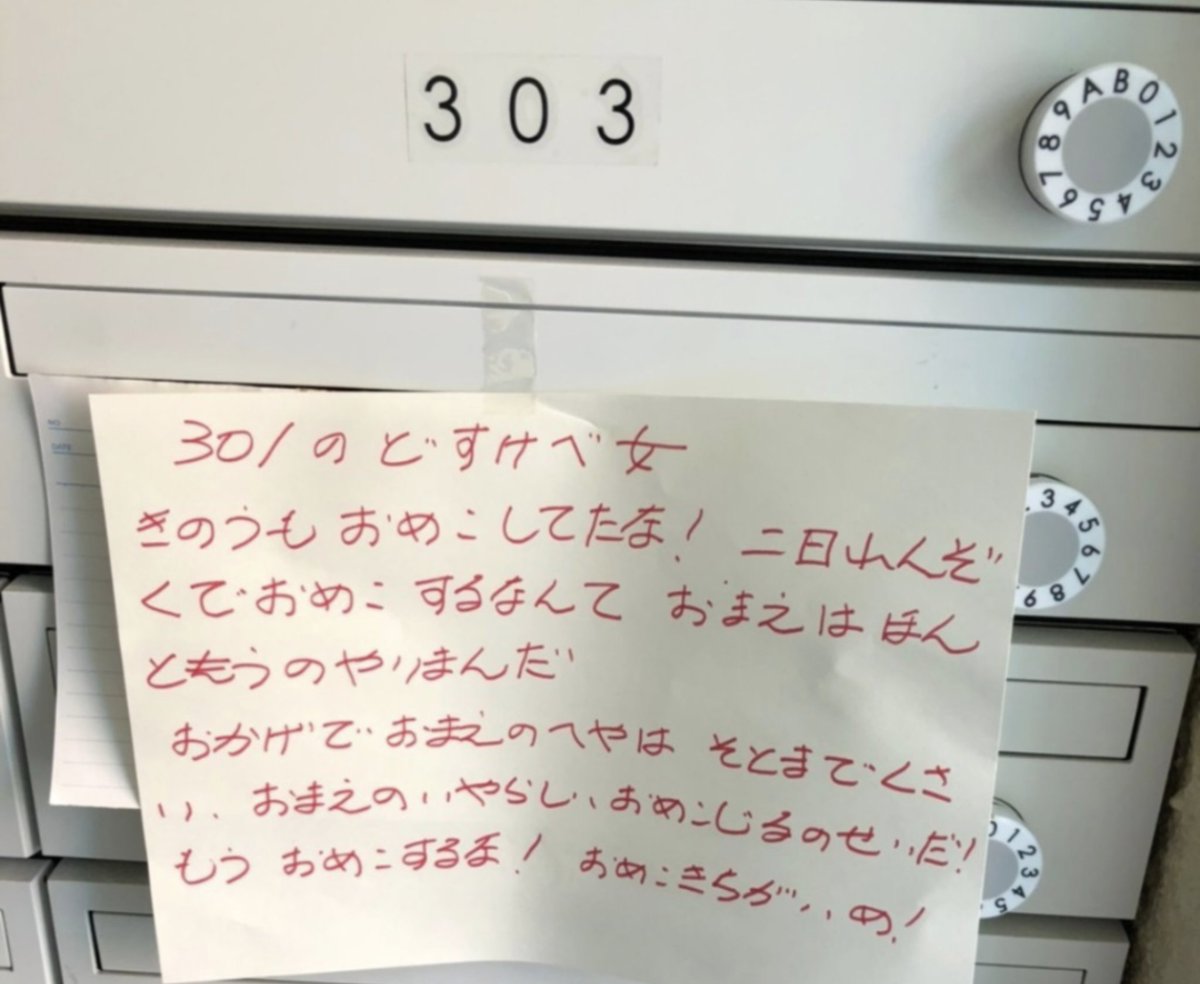 3 0 3
A B 0 1 2 3 4 5 6 7 8 9
NO
DATE
301のどすけべ女
きのうもおめこしてたな! 二日れんぞ
くでおめこするなんて おまえはほん
ともうのやりまんだ
おかげでおまえのへやは そとまでくさ
い、おまえのいやらしいおめこじるのせいだ!
もうおめこするな! おめこきちがいめ!
3 4 5 6 7 8 9
0 1 2 3 4 5